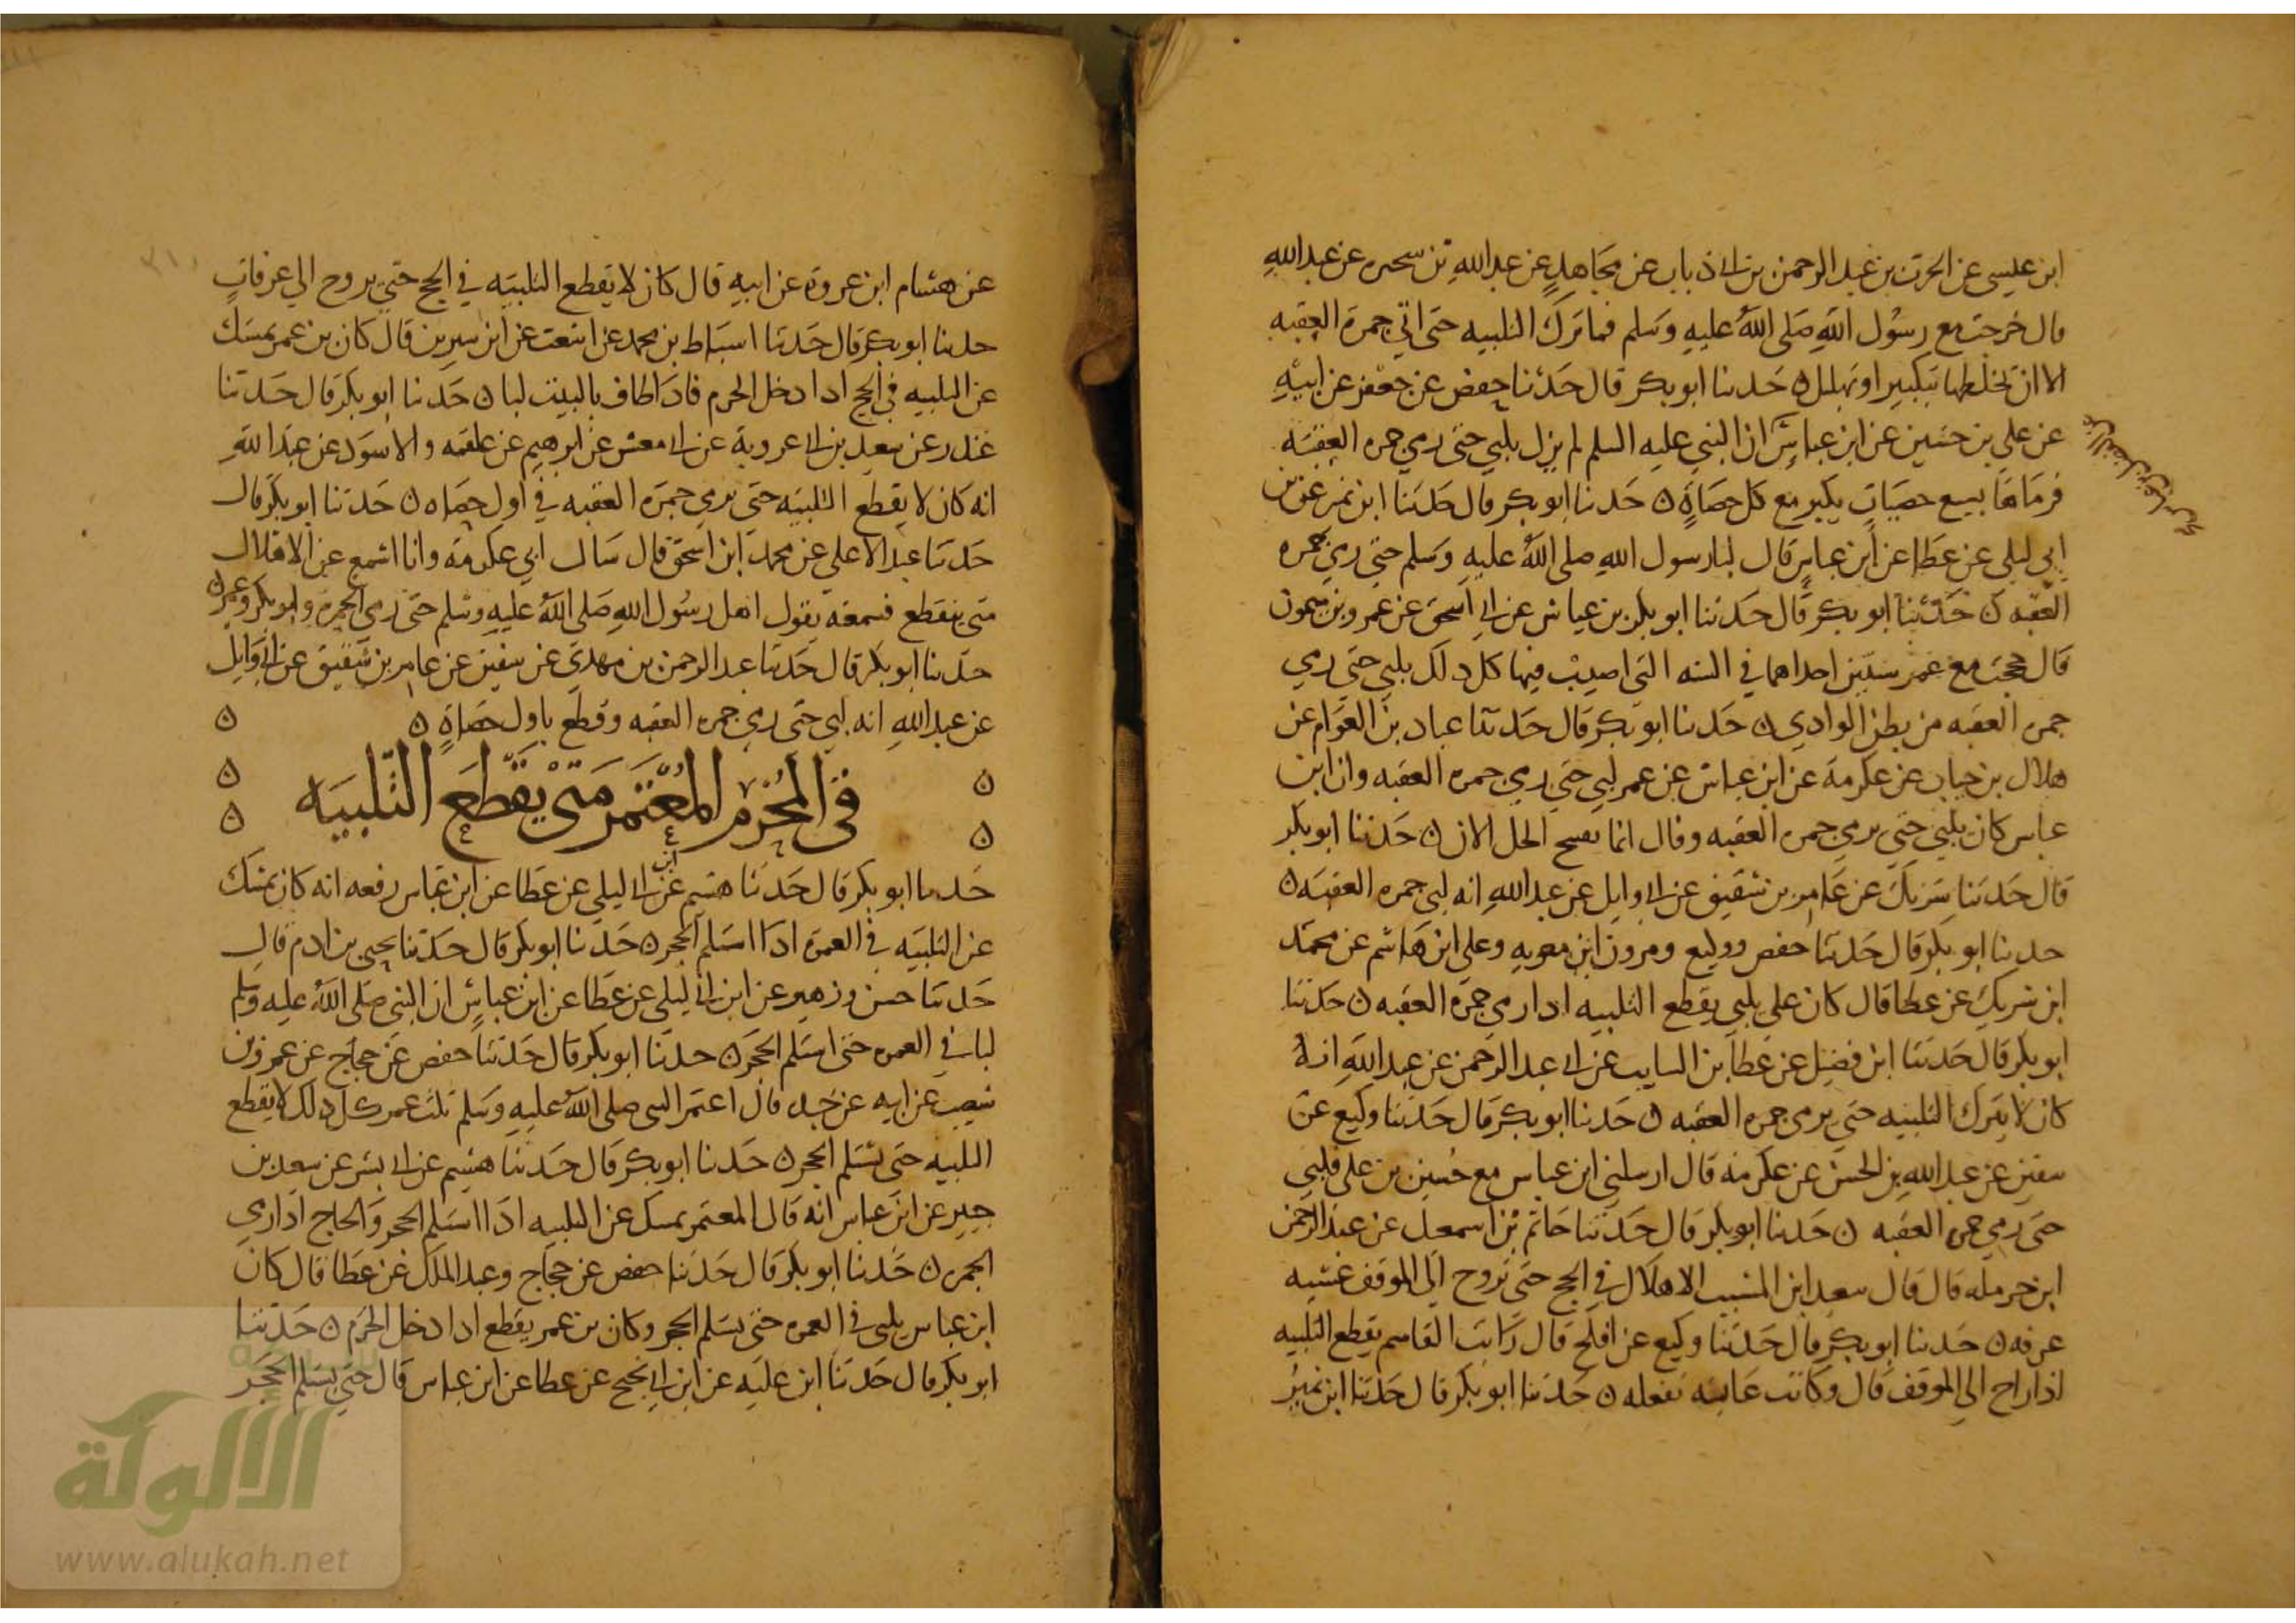 ابن عيسى عن الحرث بن عبد الرحمن بن ابي ذباب عن مجاهد عن عبد الله بن سحره عن عبد الله
قال خرجت مع رسول الله صلى الله عليه وسلم فما ترك التلبيه حتى اتي جمرة العقبه
الا ان تخلطها بتكبير او تهليل ه حدثنا ابو بكر قال حدثنا حفص عن جعفر عن ابيه
عن علي بن حسين عن ابن عباس ان النبي عليه السلم لم يزل يلبي حتى رمي جمره العقبه
فرماها بسبع حصيات يكبر مع كل حصاة ه حدثنا ابو بكر قال حدثنا ابن نمير عن بن
ابي ليلى عن عطا عن ابن عباس قال لبا رسول الله صلى الله عليه وسلم حتى رمي جمره
العقبه ه حدثنا ابو بكر قال حدثنا ابو بكر بن عياش عن ابي اسحق عن عمرو بن ميمون
قال حججت مع عمر سنتين احداهما في السنه التي اصيب فيها كل ذلك يلبي حتى رمي
جمره العقبه من بطن الوادي ه حدثنا ابو بكر قال حدثنا عباد بن العوام عن
هلال بن خباب عن عكرمة عن ابن عباس عن عمر لبي حتى رمي جمره العقبه وان ابن
عباس كان يلبي حتى يرمي جمره العقبه وقال انما يفتح الحل الان ه حدثنا ابو بكر
قال حدثنا شريك عن عامر بن شقيق عن ابي وايل عن عبد الله انه لبي جمره العقبه ه
حدثنا ابو بكر قال حدثنا حفص ووكيع ومرون ابن معويه وعلي ابن هاشم عن محمد
ابن شريك عن عطا قال كان علي يلبي يقطع التلبيه اذا رمي جمرة العقبه ه حدثنا
ابو بكر قال حدثنا ابن فضيل عن عطا بن السايب عن ابي عبد الرحمن عن عبد الله انه
كان لا يترك التلبيه حتى يرمي جمره العقبه ه حدثنا ابو بكر قال حدثنا وكيع عن
سفين عن عبد الله بن الحسن عن عكرمه قال ارسلني ابن عباس مع حسين بن علي فلبي
حتى رمي جمره العقبه ه حدثنا ابو بكر قال حدثنا حاتم بن اسمعيل عن عبد الرحمن
ابن حرمله قال قال سعيد ابن المسيب الاهلال في الحج حتى تروح الي الموقف عشيه
عرفه ه حدثنا ابو بكر قال حدثنا وكيع عن افلح قال رايت القاسم يقطع التلبيه
اذا راح الي الموقف قال وكانت عايشه تفعله ه حدثنا ابو بكر قال حدثنا ابن نمير
عن هشام ابن عروة عن ابيه قال كان لا يقطع التلبيه في الحج حتى يروح الي عرفات
حدثنا ابو بكر قال حدثنا اسباط بن محمد عن اشعث عن ابن سيرين قال كان بن عمر يمسك
عن التلبيه في الحج اذا دخل الحرم فاذا طاف بالبيت لبا ه حدثنا ابو بكر قال حدثنا
غندر عن سعيد بن ابي عروبة عن ابي معشر عن ابرهيم عن علقمه والاسود عن عبد الله
انه كان لا يقطع التلبيه حتى يرمي جمرة العقبه في اول حصاه ه حدثنا ابو بكر قال
حدثنا عبد الاعلي عن محمد ابن اسحق قال سال ابي عكرمة وانا اسمع عن الاهلال
متى ينقطع فسمعه يقول اهل رسول الله صلى الله عليه وسلم حتى رمي الجمره وابو بكر وعمر ه
حدثنا ابو بكر قال حدثنا عبد الرحمن بن مهدي عن سفين عن عامر بن شقيق عن ابي وايل
عن عبد الله انه لبي حتى رمي جمره العقبه وقطع باول حصاة ه ه
في المحرم المعتمر متى يقطع التلبيه
حدثنا ابو بكر قال حدثنا هشيم عن ابن ابي ليلي عن عطا عن ابن عباس رفعه انه كان يمسك
عن التلبيه في العمرة اذا استلم الحجر ه حدثنا ابو بكر قال حدثنا يحيى بن ادم قال
حدثنا حسن وزهير عن ابن ابي ليلي عن عطا عن ابن عباس ان النبي صلى الله عليه وسلم
لبا في العمره حتى استلم الحجر ه حدثنا ابو بكر قال حدثنا حفص عن حجاج عن عمرو بن
شعيب عن ابيه عن جده قال اعتمر النبي صلى الله عليه وسلم ثلث عمر كل ذلك لا يقطع
التلبيه حتى يستلم الحجر ه حدثنا ابو بكر قال حدثنا هشيم عن ابي بشر عن سعيد بن
جبير عن ابن عباس انه قال المعتمر يمسك عن التلبيه اذا استلم الحجر والحاج اذا رمي
الجمره ه حدثنا ابو بكر قال حدثنا حفص عن حجاج وعبد الملك عن عطا قال كان
ابن عباس يلبي في العمره حتى يستلم الحجر وكان بن عمر يقطع اذا دخل الحرم ه حدثنا
ابو بكر قال حدثنا ابن عليه عن ابن ابي نجيح عن عطا عن ابن عباس قال حتى يستلم الحجر
الألوكة
www.alukah.net